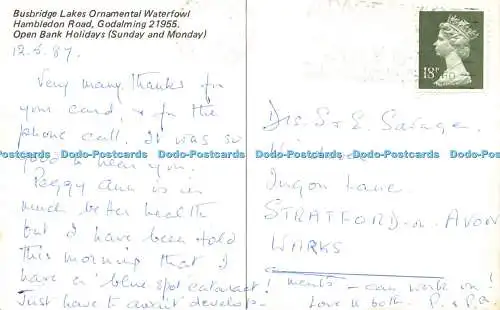 Busbridge Lakes Ornamental Waterfowl
Hambledon Road, Godalming 21955.
Open Bank Holidays (Sunday and Monday)
12.5.87.
Very many thanks for
your card, & for the
phone call. It was so
good to hear you.
Peggy Ann is in
much better health
but I have been told
this morning that I
have a 'blue spot cataract'!
Just have to await develop-
ments - can work on!
Love to both. P. & P.A.
18P
Drs. S & E. Savage.
Ingon Lane.
STRATFORD-on-AVON
WARKS
Dodo-Postcards Dodo-Postcards Dodo-Postcards Dodo-Postcards Dodo-Postcards